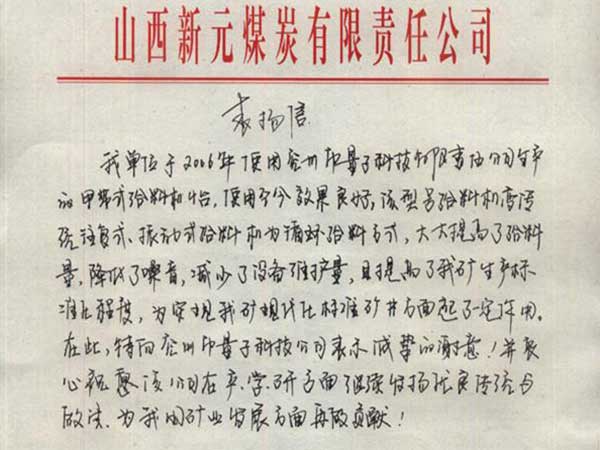 山西新元煤炭有限责任公司
表扬信
我单位于2006年使用兖州量子科技有限责任公司生产
的甲带式给料机1台,使用至今效果良好,该型号给料机变传
统往复式、振动式给料机为循环给料方式,大大提高了给料
量,降低了噪音,减少了设备维护量,且提高了我矿生产标
准化强度,为实现我矿现代化标准矿井方面起了一定作用。
在此,特向兖州量子科技公司表示诚挚的谢意!并衷
心祝愿该公司在产、学、研方面继续发扬优良传统与
做法,为我国矿业发展方面再做贡献!